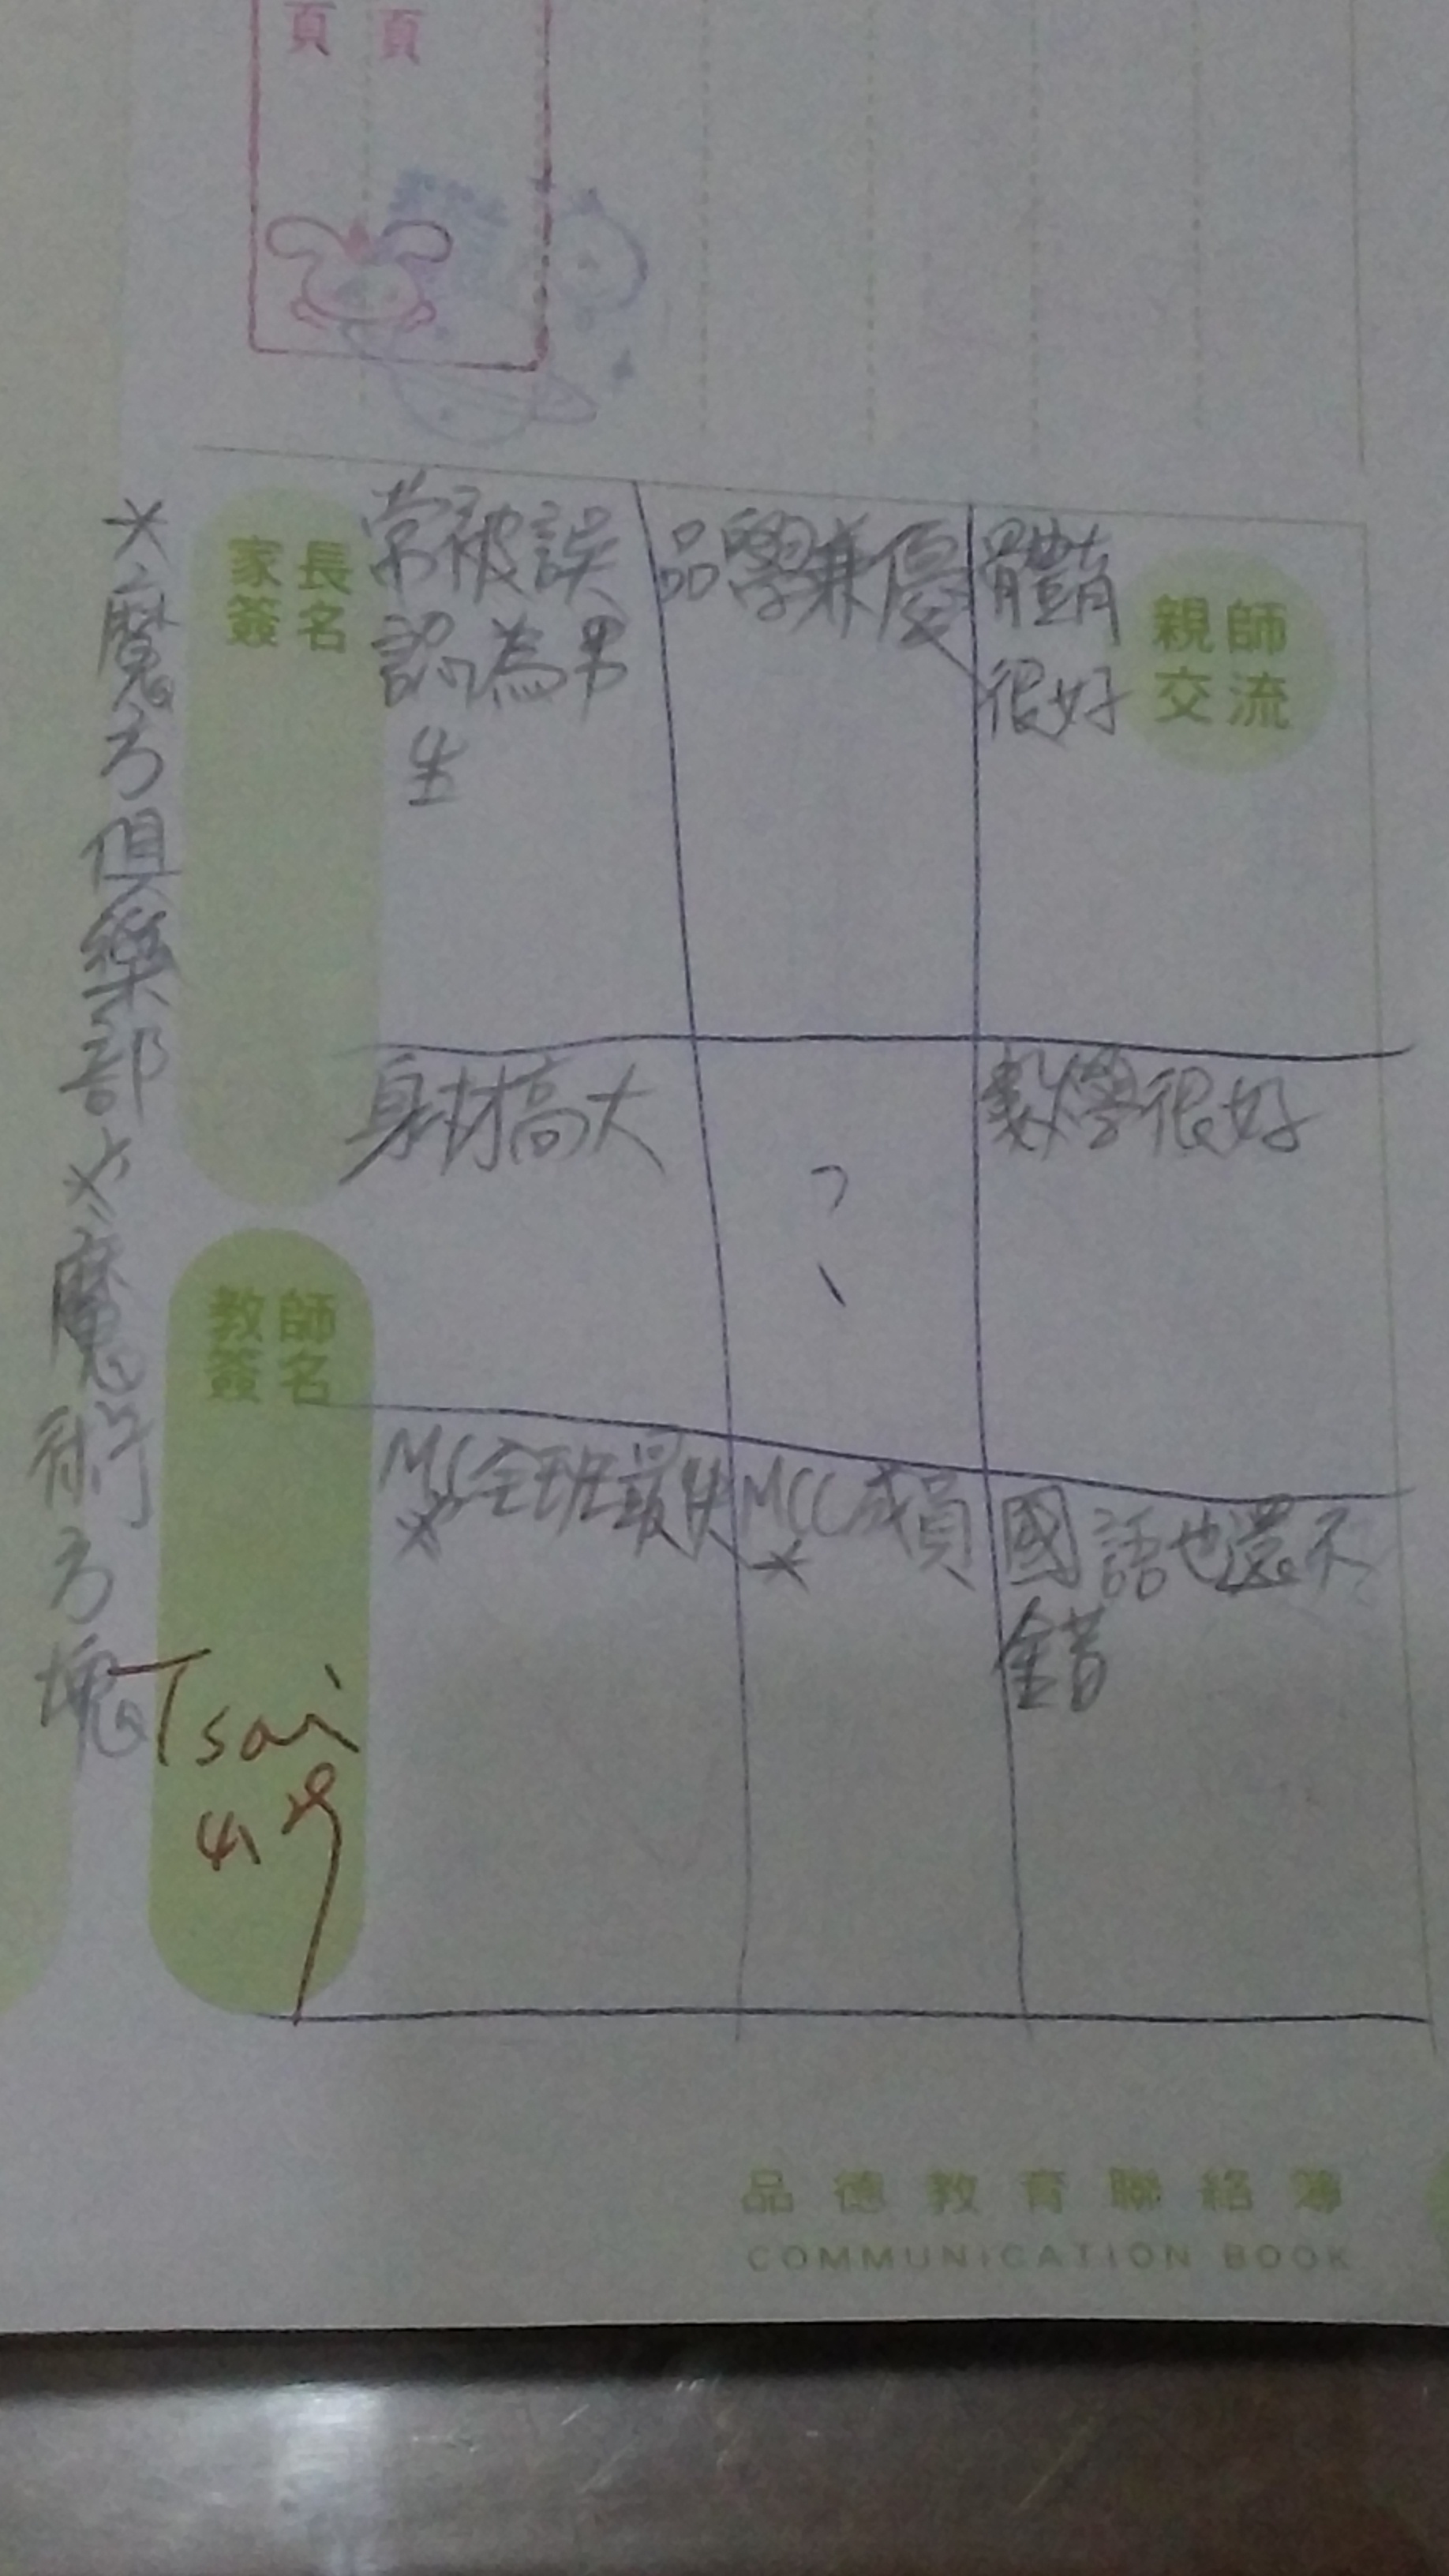 頁 頁
家長
簽名
常被誤
認為男
生
品學兼優
體育
很好
親師
交流
身材高大
?
數學很好
教師
簽名
MC全班最快
*
MCC成員
*
國語也還不
錯
*魔方俱樂部
*魔術方塊
Tsai
品德教育聯絡簿
COMMUNICATION BOOK